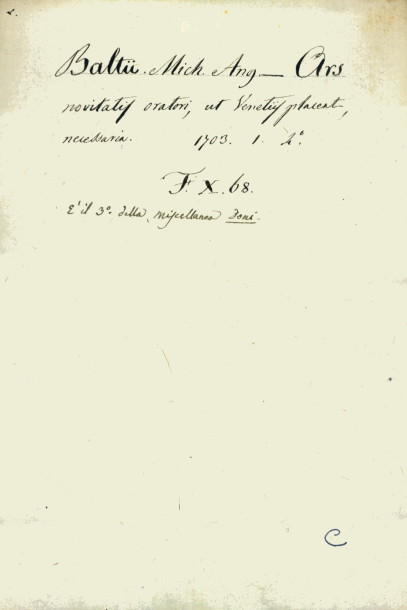 Baltii. Mich. Ang — Ars
novitatis oratori, ut Venetijs placeat,
necessaria. 1703. 1. 4°.
F. X. 68.
E' il 3°. della miscellanea Doni.
C